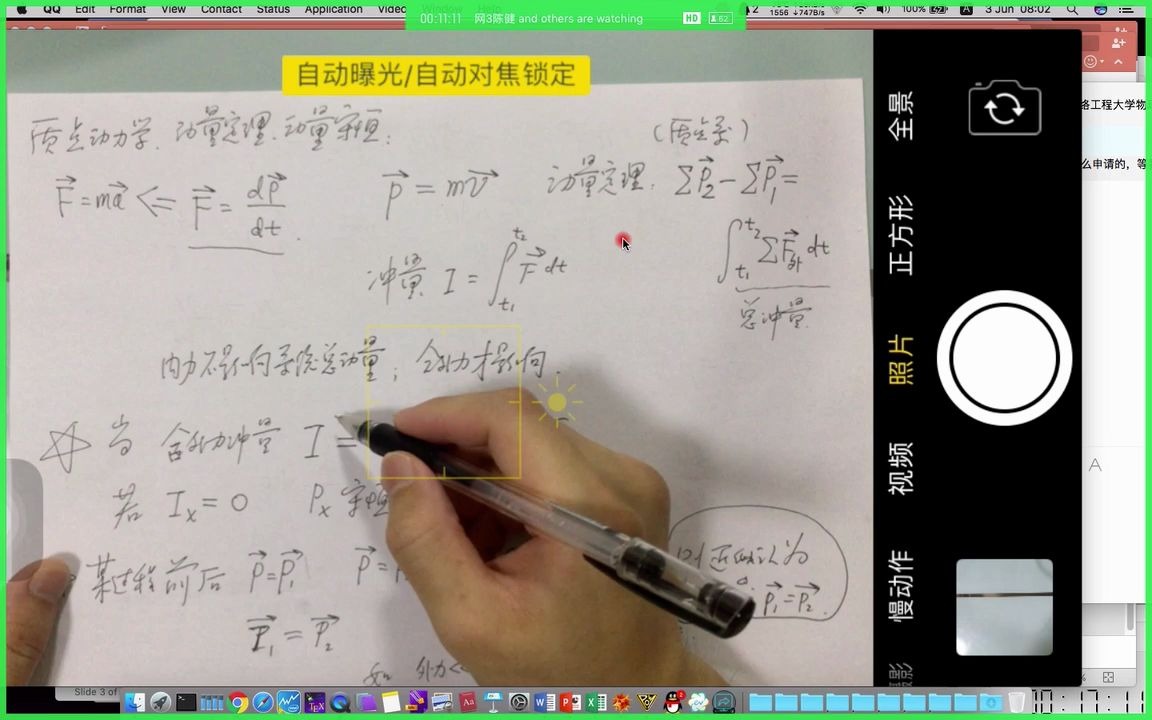 QQ Edit Format View Contact Status Application Video Window Help
1556 ↓747B/s 100% 3 Jun 08:02
00:11:11 网3陈健 and others are watching HD 62
自动曝光/自动对焦锁定
质点动力学、动量定理、动量守恒:
(质点系)
F⃗=ma⃗ <= F⃗= dp⃗/dt
p⃗=mv⃗
动量定理: ΣP⃗₂-ΣP⃗₁=
∫t₁t₂ ΣF⃗外dt
总冲量
冲量 I=∫t₁t₂ F⃗dt
内力不影响系统总动量; 合外力才影响.
当 合外力冲量 I=
若 Iₓ=0 Pₓ守恒
某过程前后 P⃗=P⃗₁ P⃗=
P⃗₁=P⃗₂
如 外力<<
近似认为
P⃗₁=P⃗₂
全景
正方形
照片
视频
慢动作
洛工程大学物
么申请的，等
A
Slide 3 of
10:17:11